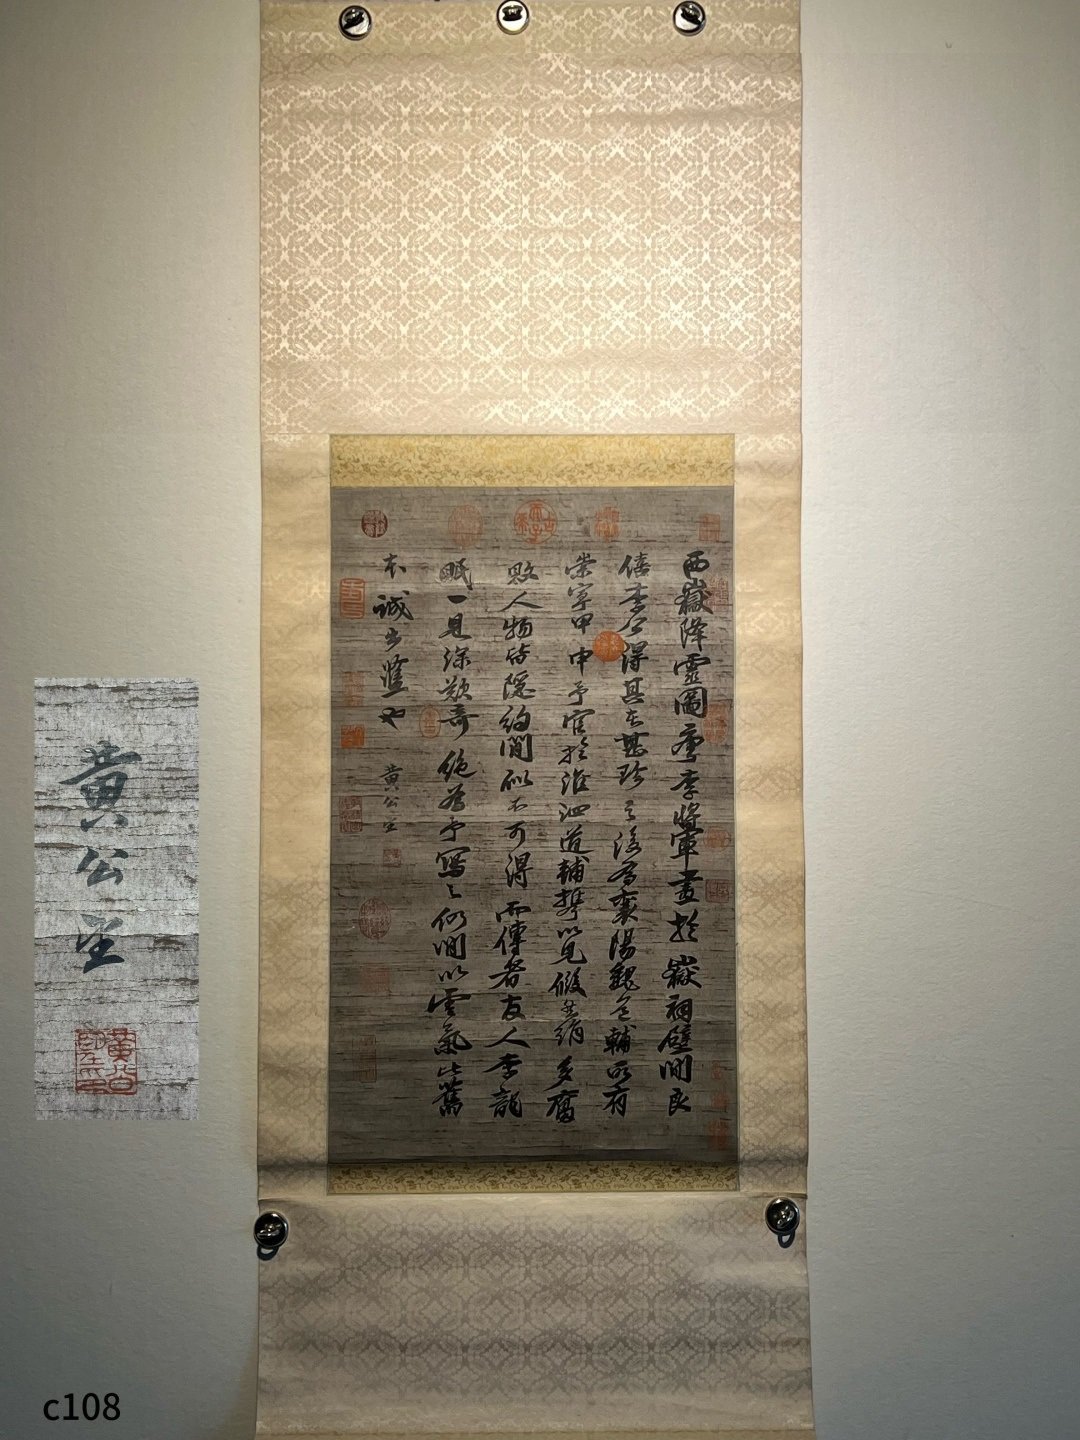 西嶽降靈圖唐李將軍畫於嶽祠壁間良
僖李公得其本甚珍之後為襄陽魏輔所有
崇寧甲申予官於淮泗道輔攜以見假絹多腐
敗人物皆隱約間似不可得而傳者友人李龍
眠一見深歎奇絕為予寫之仍間以雲氣比舊
本誠出藍也 黃公望
黃公望
c108